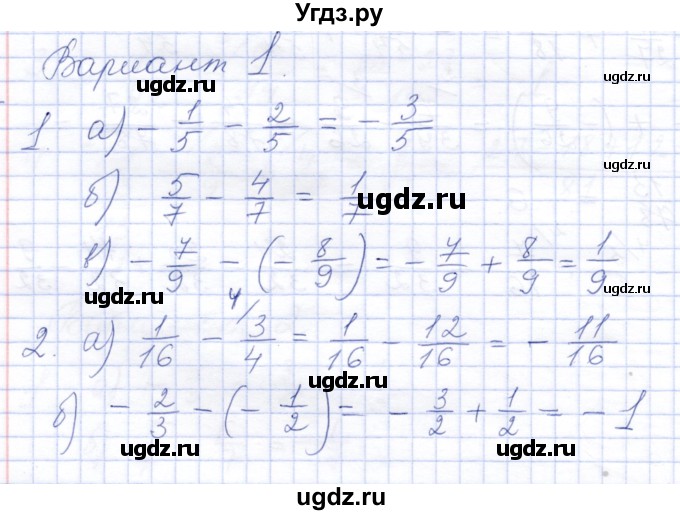 Угдз.ру
Вариант 1.
ugdz.ru ugdz.ru
1. а) - 1/5 - 2/5 = - 3/5
ugdz.ru ugdz.ru
б) 5/7 - 4/7 = 1/7
ugdz.ru
в) - 7/9 - (- 8/9) = - 7/9 + 8/9 = 1/9
ugdz.ru ugdz.ru
2. а) 1/16 - 3/4 (4/) = 1/16 - 12/16 = - 11/16
ugdz.ru ugdz.ru
б) - 2/3 - (- 1/2) = - 3/2 + 1/2 = - 1
ugdz.ru ugdz.ru
ugdz.ru